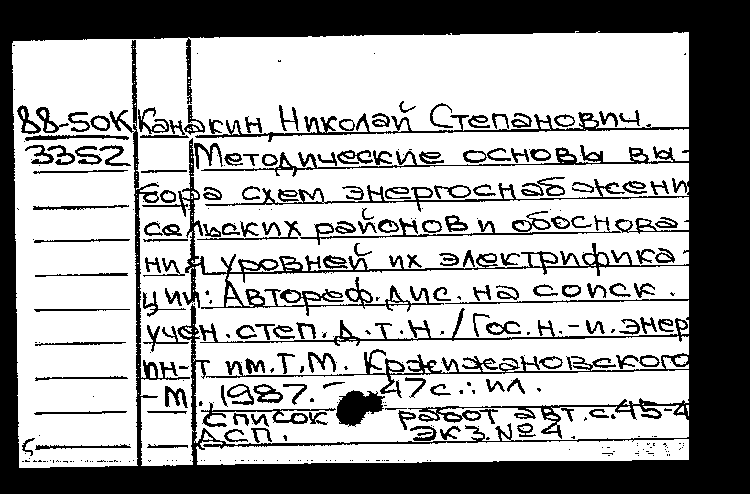 88-50К Канакин, Николай Степанович.
3352 Методические основы вы-
бора схем энергоснабжени
сельских районов и обоснова-
ния уровней их электрифика-
ции: Автореф. дис. на соиск.
учен. степ. д.т.н. / Гос. н.-и. энер
ин-т им. Г.М. Кржижановского
-М., 1987. - 47 с.: ил.
Список работ авт. с. 45-4
ДСП. Экз. №4.